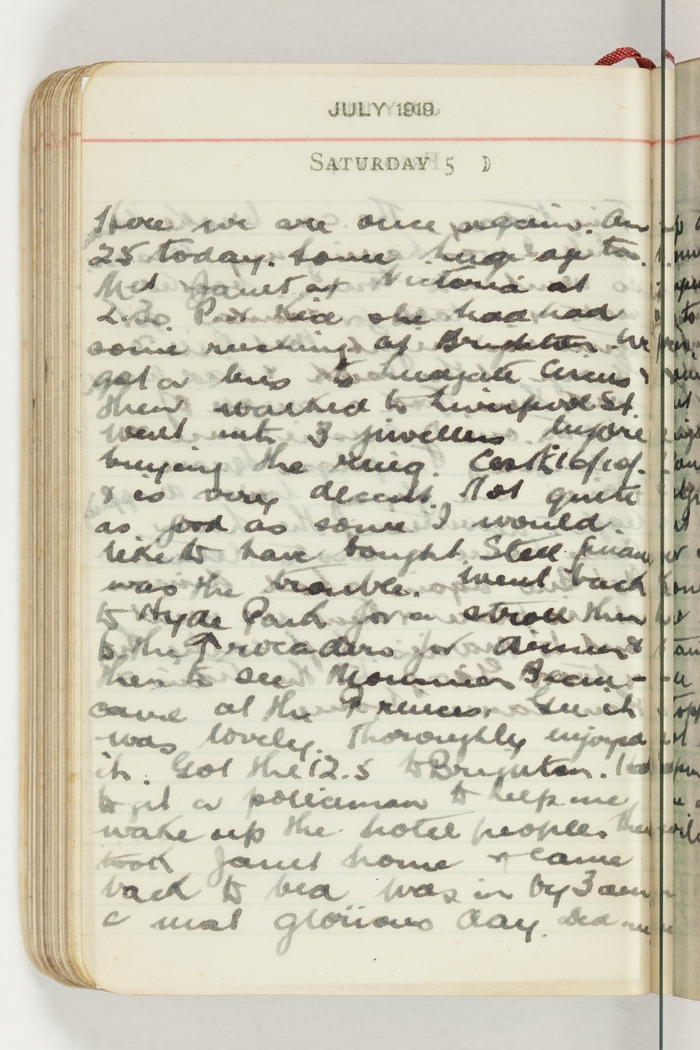 JULY 1919
SATURDAY 5
Here we are once again. Am
25 today. Some huge age too.
Met Janet at Victoria at
2.30. Poor kid she had had
some rushing at Brighton. We
got a bus to Ludgate Circus &
then walked to Liverpool St.
went into 3 jewellers before
buying the ring. Cost £16/10/-
& is very decent. Not quite
as good as some I would
like to have bought Still finan
was the trouble. Went back
to Hyde Park for a stroll then
to the Trocadero for dinner &
then to see Monsieur Beau-
caire at the Princes. Such
was lovely. Thoroughly enjoyed
it. Got the 12.5 to Brighton. Had
to get a policeman to help me
wake up the hotel people. Then
took Janet home & came
back to bed was in by 3 am
a most glorious day. Did